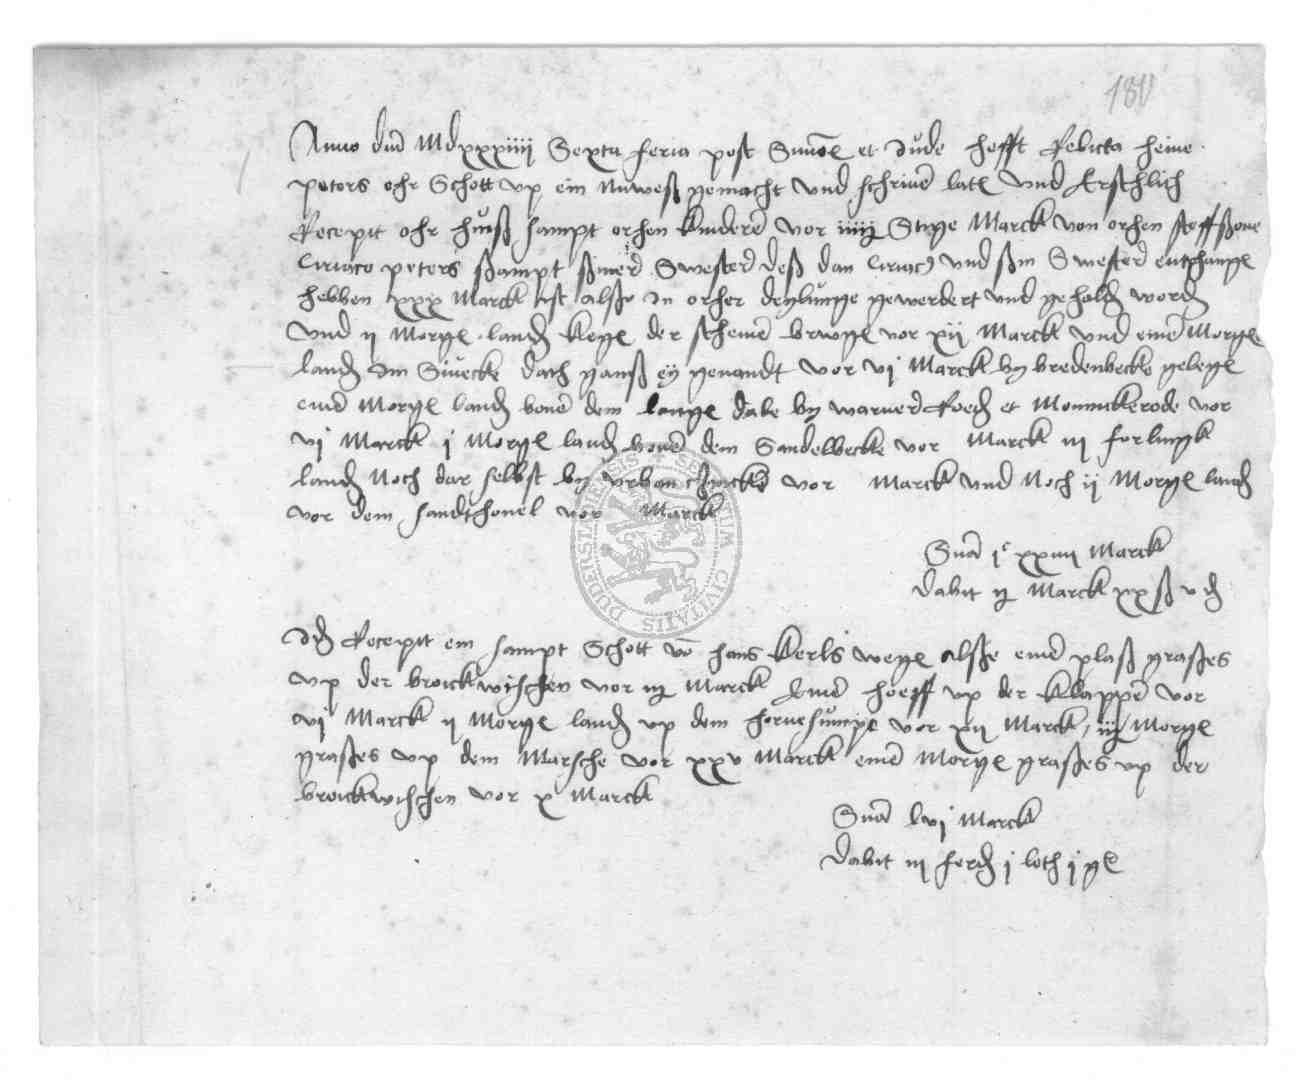 181
Anno dni Mdxxxiiij Sexta feria post Simois et Jude hefft Relicta heine
peters ohr Schott up ein nuweß gemacht und schriven lath und Erschlich
Recepit ohr huiß sampt orhen kinderen vor iiij Stige Marck von orhen steffßone
Ciriaco peters ßampt ßiner Swester deß dan Ciriacus und sin Swester entphangen
hebben xxx Marck ist alßo in orher deylunge gewerdert und geholden worden
und ij Morgen landes kegen der schemen brugen vor xij Marck und einen Morgen
landes im Siuecke dach ganß genandt vor vj Marck by bredenbecke gelegen
einen Morgen landes boven dem langen dale by warner Roeden et Monnickerode vor
vj Marck j Morgen landes boven dem Sandelbecke vor Marck iij forlingk
landes Noch dar selbst by urban vor Marck und Noch ij Morgen landes
vor dem sandthovel vor Marck
Suma jc xxiiij Marck
dabit ij Marck xx ß v d
Idem Recepit ein sampt Schott von hans kerls wegen alße einen plaß graßes
up der broickwischen vor iij Marck Einen hoeff up der klappen vor
vj Marck ij Morgen landes up dem hornesumpe vor xij Marck, iij Morgen
graßes up dem Marsche vor xxv Marck einen Morgen graßes up der
broickwischen vor x Marck
Suma lvj Marck
dabit iij ferd j loth j
SIGILLUM CIVITATIS DUDERSTATENSIS